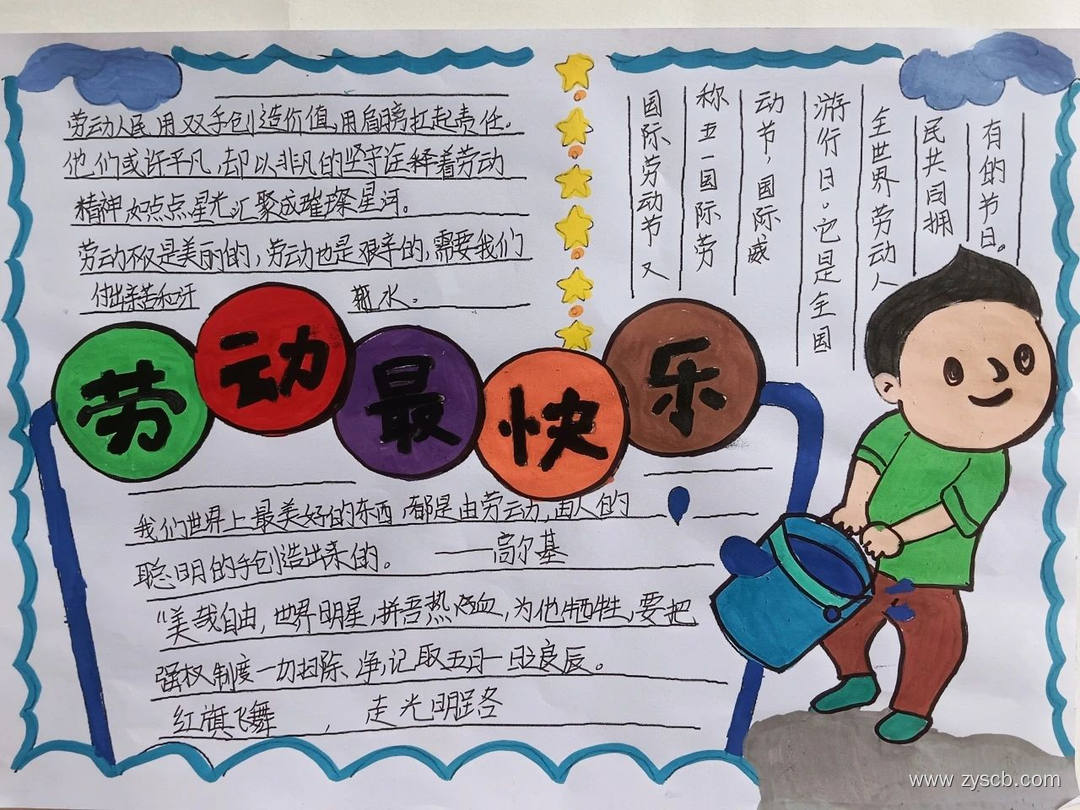 劳动人民用双手创造价值,用肩膀扛起责任。
他们或许平凡,却以非凡的坚守诠释着劳动
精神如点点星光汇聚成璀璨星河。
劳动不仅是美丽的,劳动也是艰辛的,需要我们
付出亲苦和汗 水。
国际劳动节又
称五一国际劳
动节,国际
游行日。它是全国
全世界劳动人
民共同拥
有的节日。
劳动最快乐
我们世界上最美好的东西,都是由劳动,由人的
聪明的手创造出来的。 ——高尔基
“美哉自由,世界明星,拼吾热血,为他牺牲,要把
强权制度一切扫除净,记取五月一日之良辰。
红旗飞舞 , 走光明路
www.zyscb.com